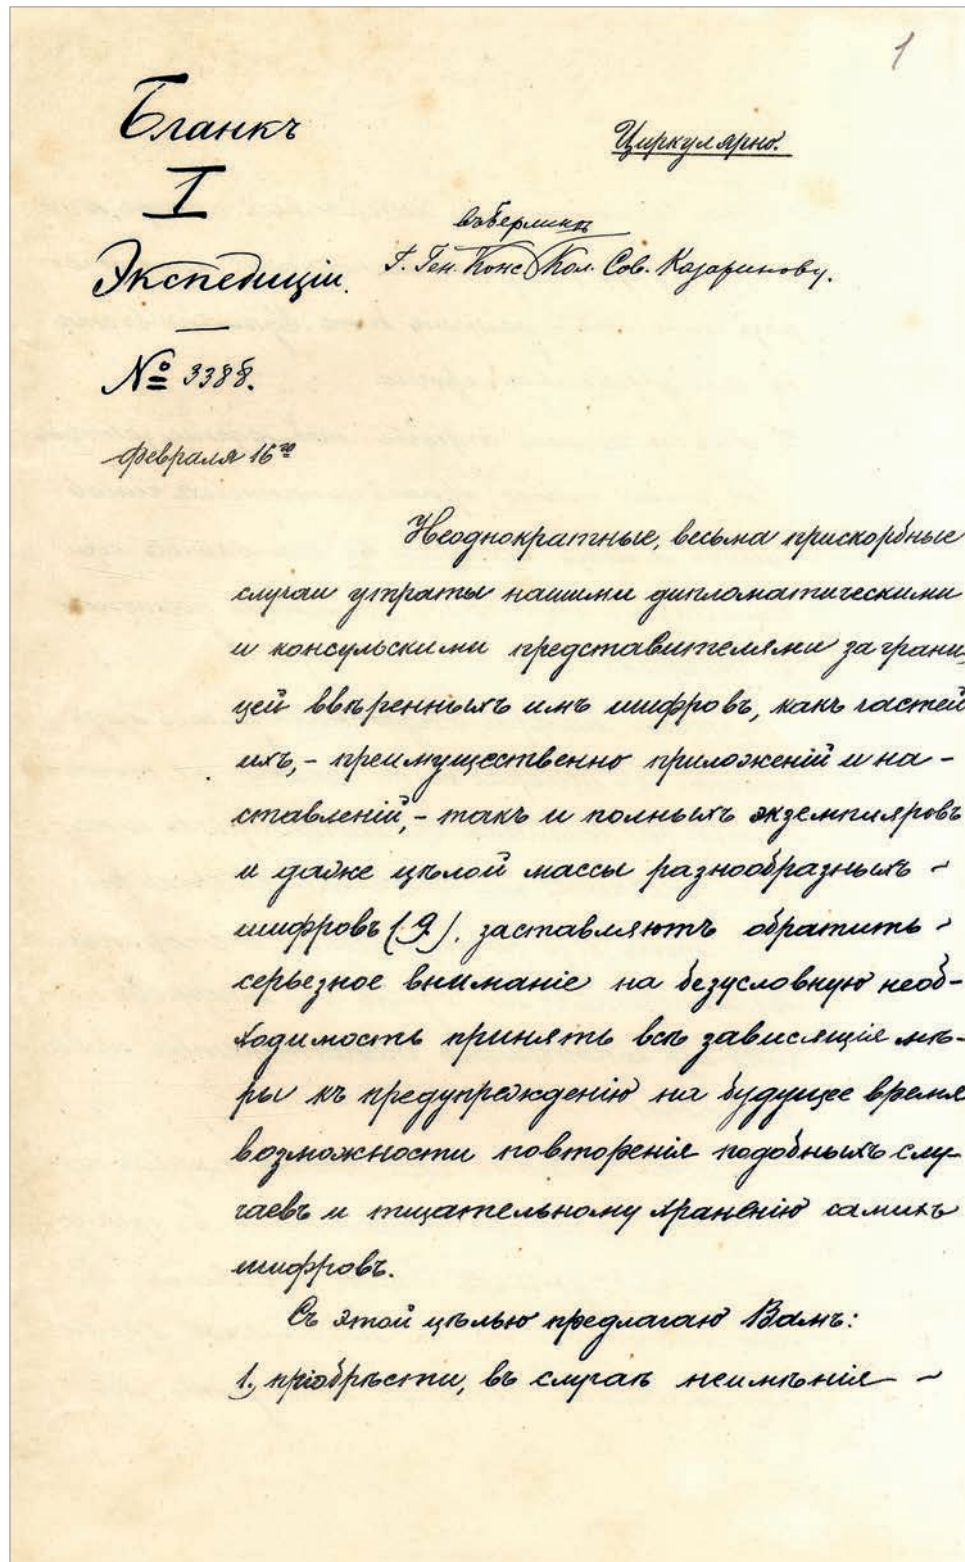 1
Бланкъ
I
Экспедиціи.
№ 3388.
Февраля 16го
Циркулярно.
въ Берлинѣ
Г. Ген. Конс. Кол. Сов. Казаринову.
Неоднократные, весьма прискорбные
случаи утраты нашими дипломатическими
и консульскими представителями за грани-
цей ввѣренныхъ имъ шифровъ, какъ частей
ихъ, - преимущественно приложеній и на-
ставленій, - такъ и полныхъ экземпляровъ
и даже цѣлой массы разнообразныхъ -
шифровъ (9). заставляютъ обратить -
серьезное вниманіе на безусловную необ-
ходимость принять всѣ зависящія мѣ-
ры къ предупрежденію на будущее время
возможности повторенія подобныхъ слу-
чаевъ и тщательному храненію самихъ
шифровъ.
Съ этой цѣлью предлагаю Вамъ:
1., пріобрѣсти, въ случаѣ неимѣнія -